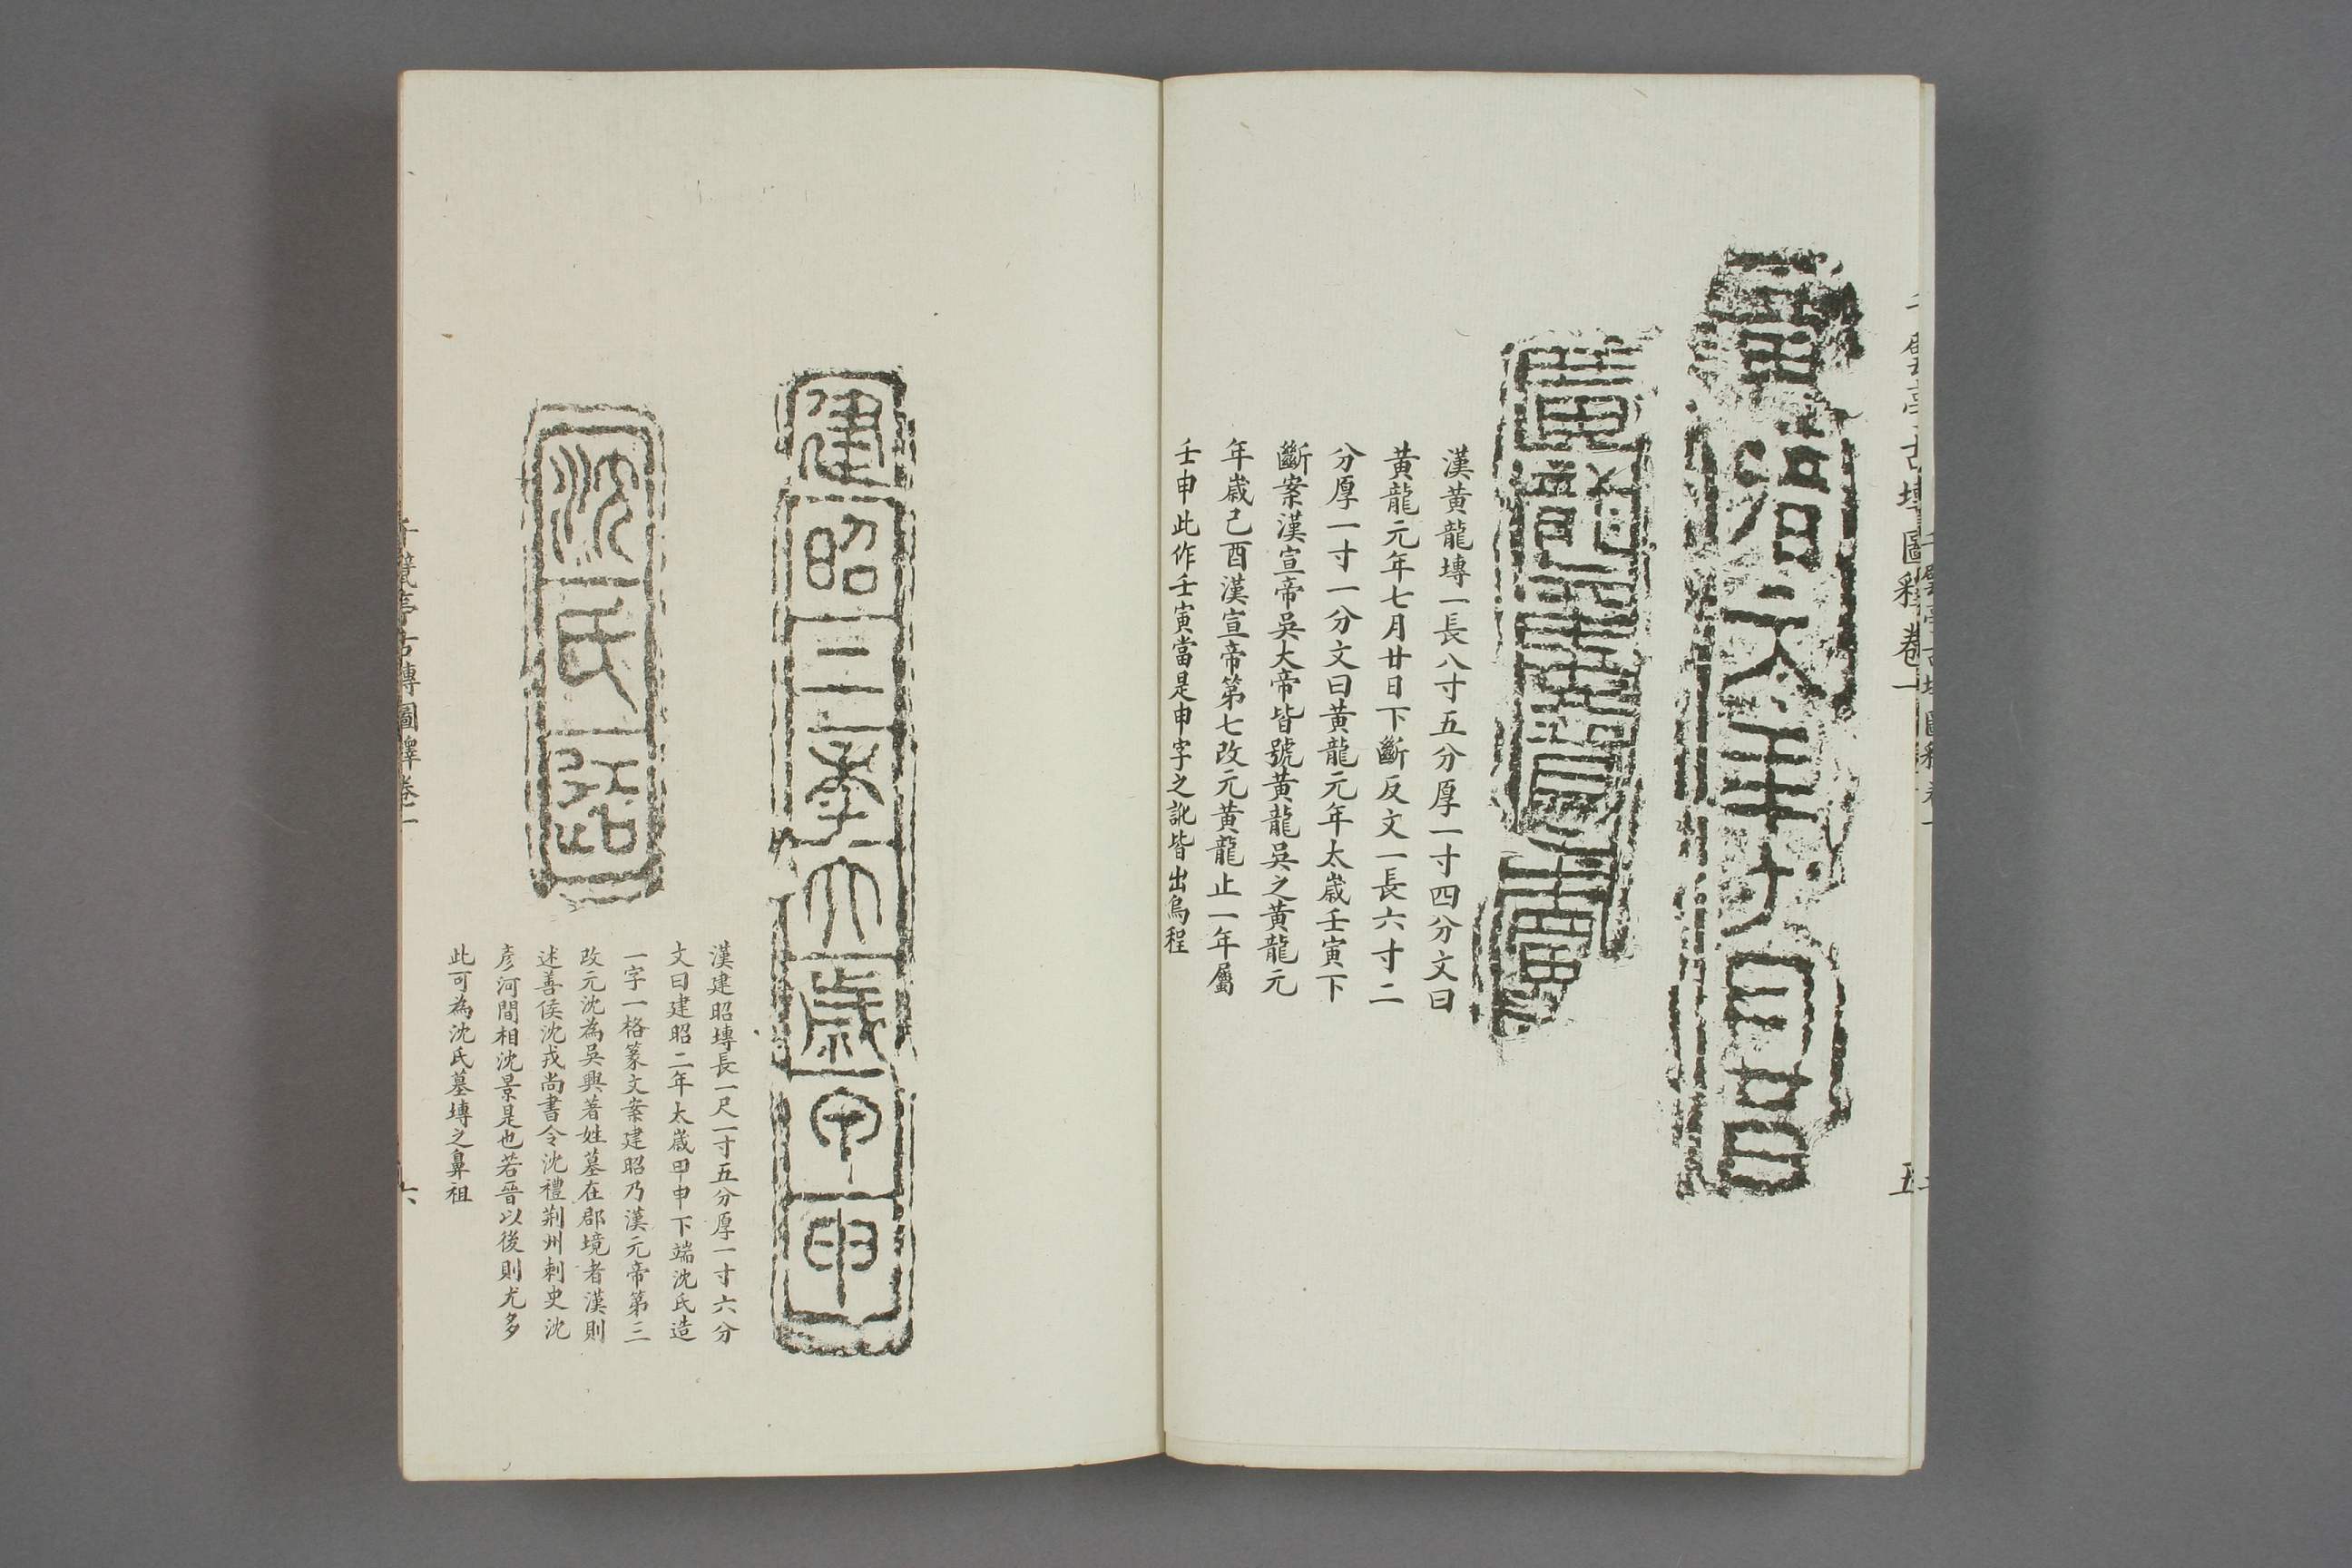 千甓亭古塼圖釋卷一
五
漢黃龍塼一長八寸五分厚一寸四分文曰
黃龍元年七月廿日下斷反文一長六寸二
分厚一寸一分文曰黃龍元年太歲壬寅下
斷案漢宣帝吳大帝皆號黃龍吳之黃龍元
年歲己酉漢宣帝第七改元黃龍止一年屬
壬申此作壬寅當是申字之訛皆出烏程
建昭二年大歲甲申
漢建昭塼長一尺一寸五分厚一寸六分
文曰建昭二年太歲甲申下端沈氏造
一字一格篆文案建昭乃漢元帝第三
改元沈為吳興著姓墓在郡境者漢則
述善侯沈戎尚書令沈禮荊州刺史沈
彥河間相沈景是也若晉以後則尤多
此可為沈氏墓塼之鼻祖
沈氏造
千甓亭古塼圖釋卷一
六